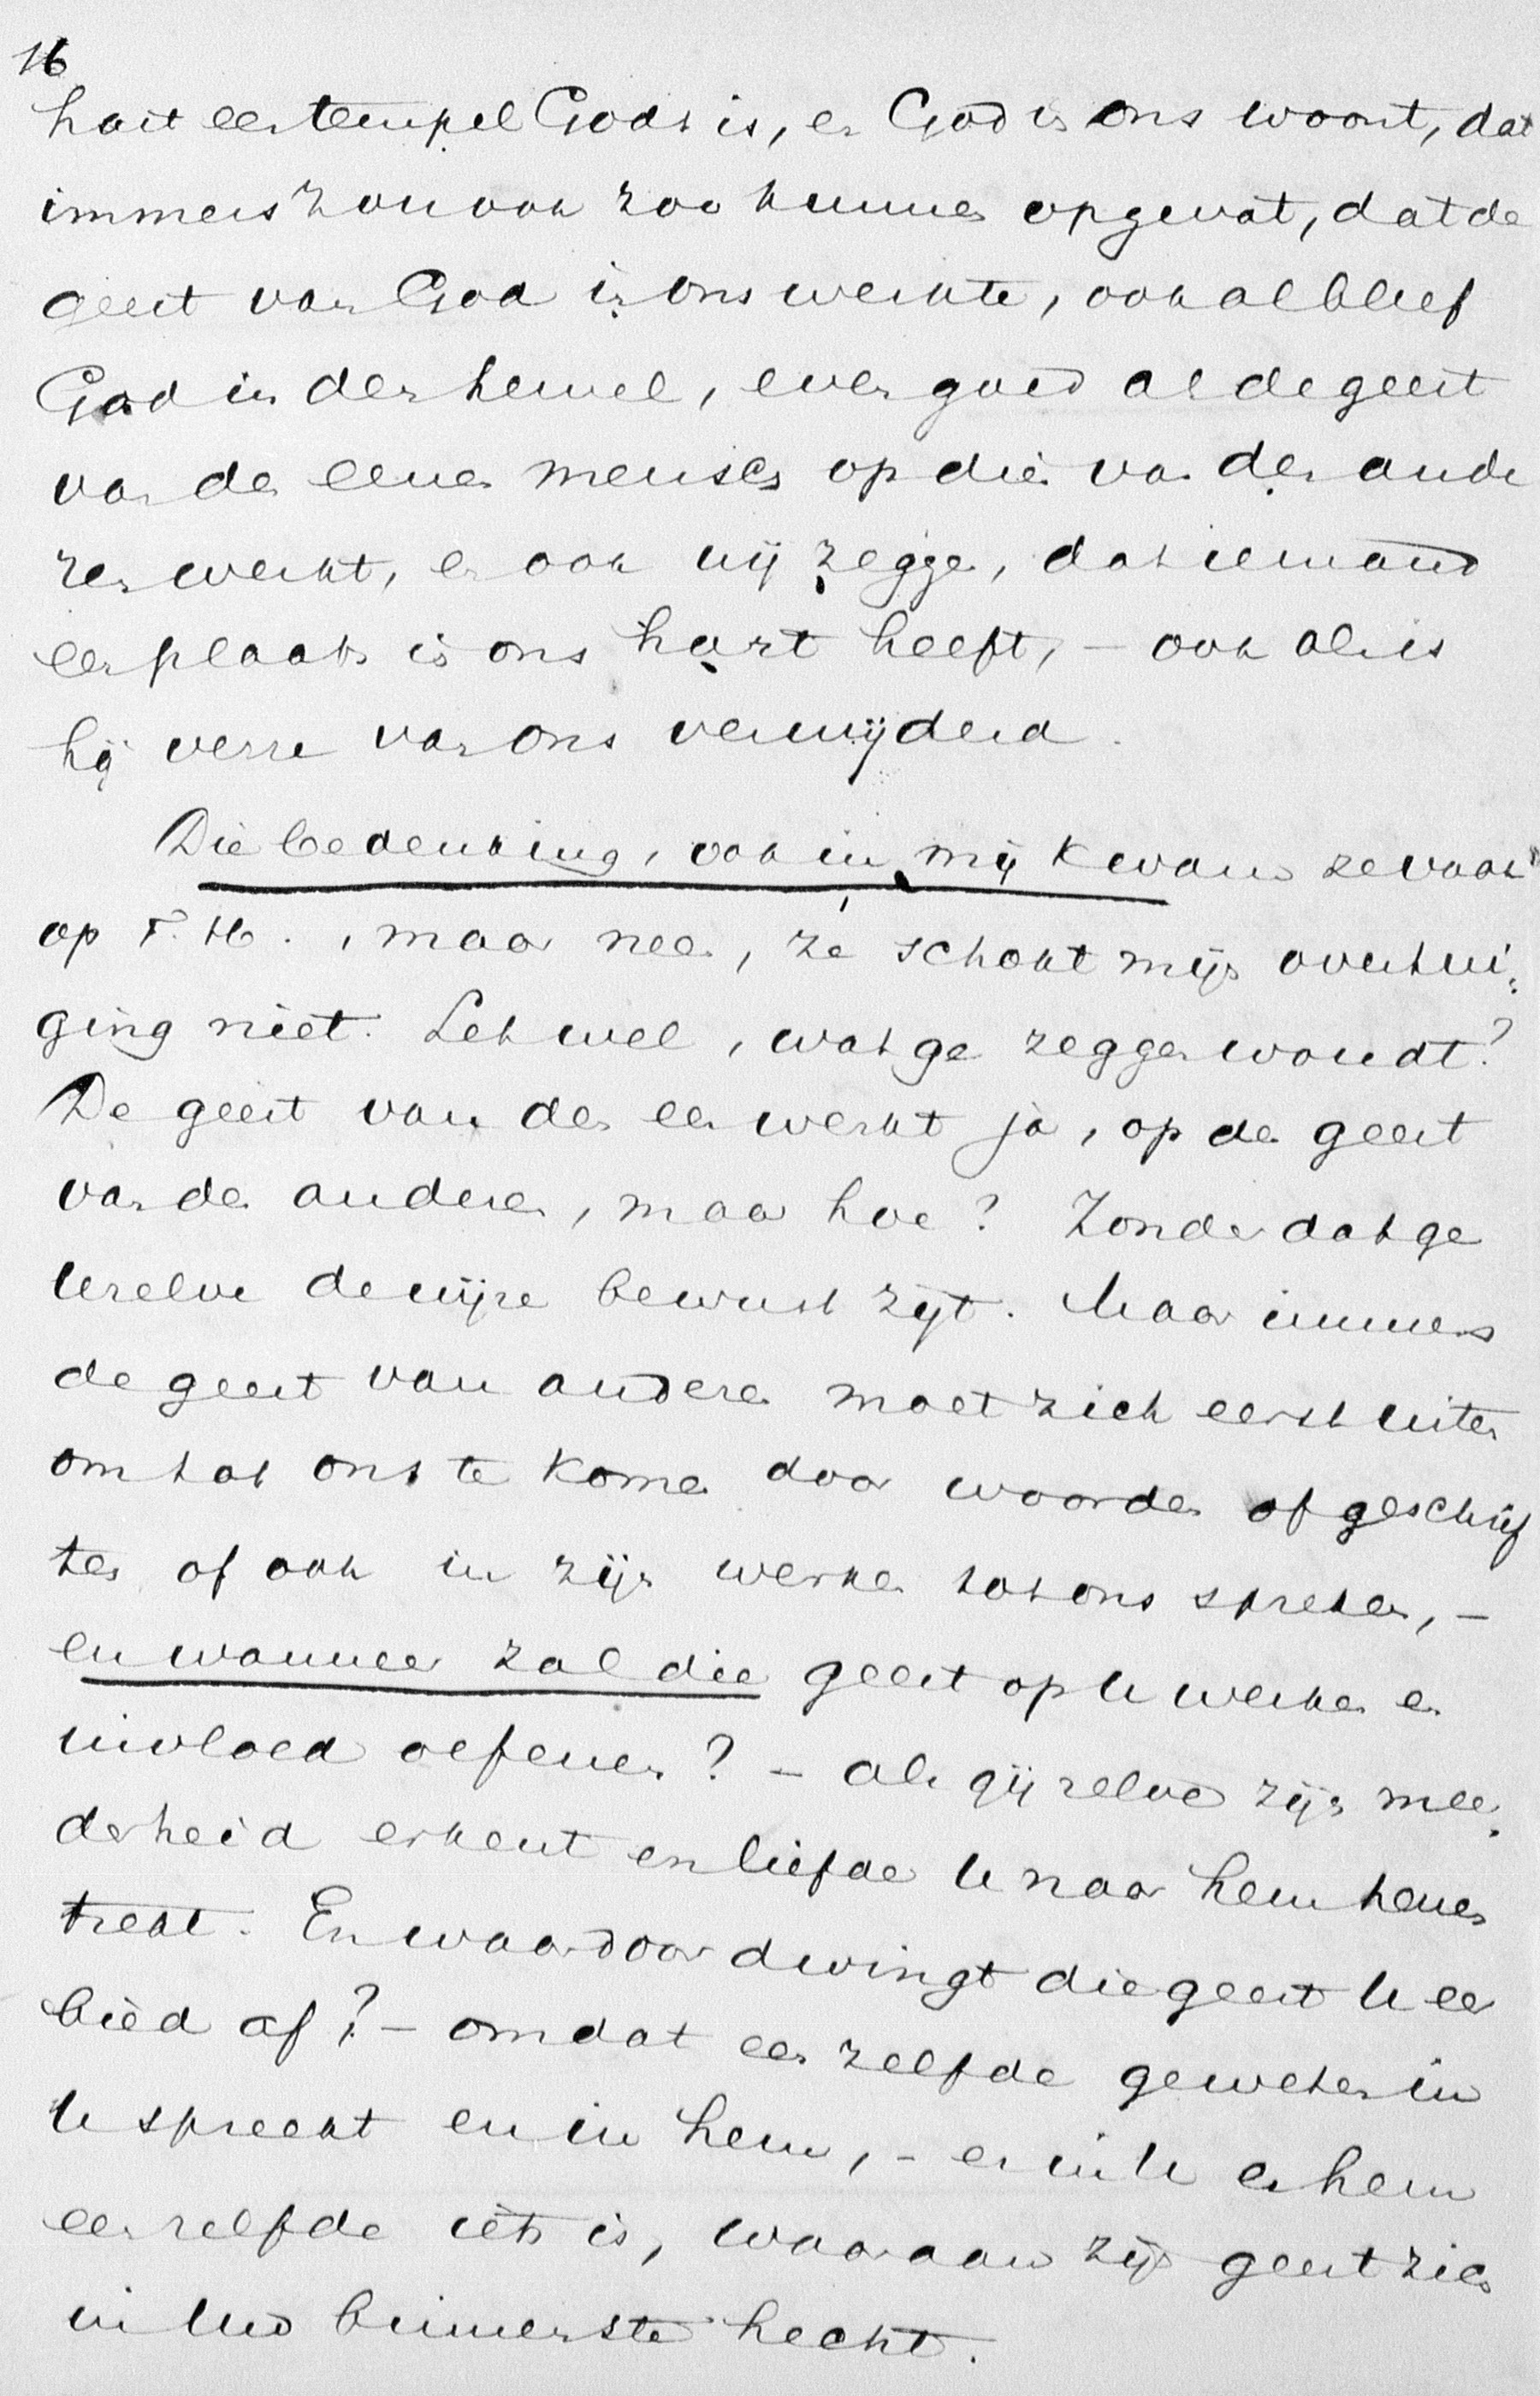 16
hart een tempel Gods is, en God in ons woont, dat
immers zou ook zoo kunnen opgevat, dat de
geest van God in ons werkte, ook al bleef
God in den hemel, even goed als de geest
van de eene mensch op die van den ande
ren werkt, en ook wij zeggen, dat iemand
een plaats in ons hart heeft, – ook al is
hij verre van ons verwijderd.
Die bedenking, ook in mij kwam ze vaak
op T. H., maar neen, ze schokt mijn overtui-
ging niet. Let wel, wat ge zeggen woudt?
De geest van den een werkt ja, op den geest
van den anderen, maar hoe? Zonder dat ge
Uzelve de wijze bewust zijt. Maar immers
de geest van anderen moet zich eerst uiten
om tot ons te komen door woorden of geschrif
ten of ook in zijn werken tot ons spreken, –
en wanneer zal die geest op U werken en
invloed oefenen? – als gij zelve zijn meer-
derheid erkent en liefde U naar hem henen
trekt. En waardoor dwingt die geest U eer
bied af? – omdat een zelfde geweten in
U spreekt en in hem, – en in U en hem
een zelfde iets is, waaraan zijn geest zich
in Uw binnenste hecht.